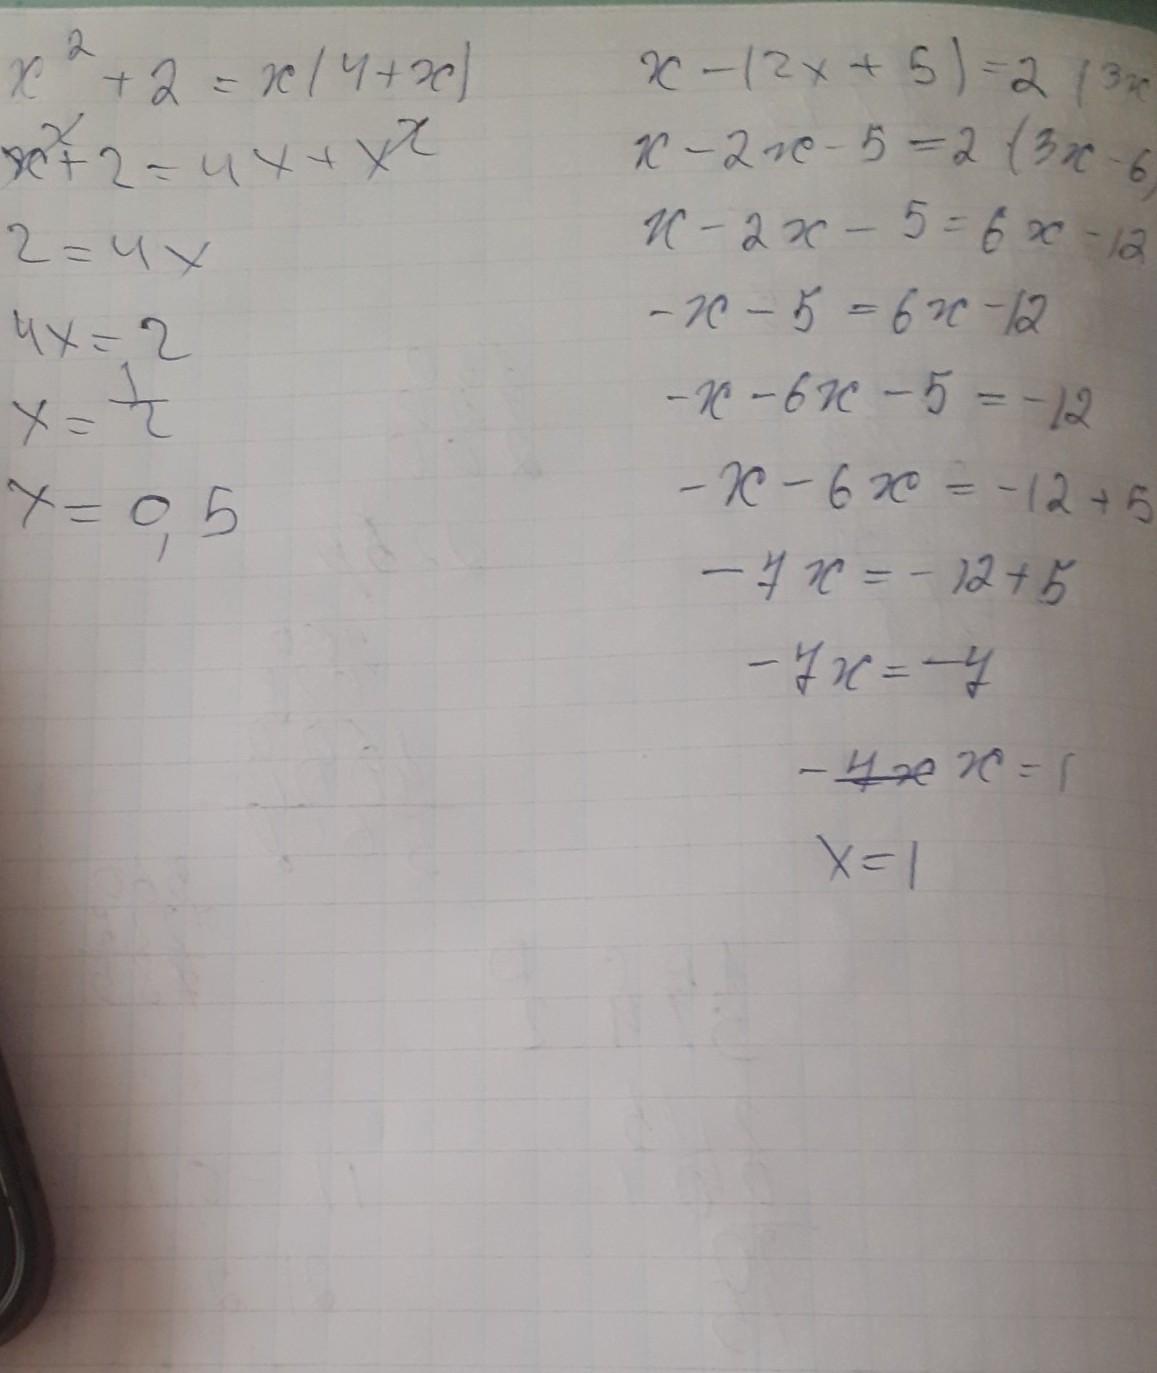 x² + 2 = x(4+x)
x² + 2 = 4x + x²
2 = 4x
4x = 2
x = 1/2
x = 0,5
x - (2x + 5) = 2 (3x
x - 2x - 5 = 2 (3x - 6)
x - 2x - 5 = 6x - 12
-x - 5 = 6x - 12
-x - 6x - 5 = -12
-x - 6x = -12 + 5
-7x = -12 + 5
-7x = -7
- 7x x = 1
x = 1